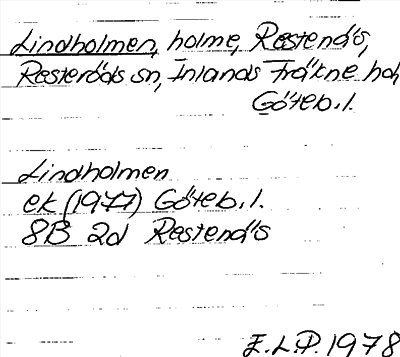 Lindholmen, holme, Restenäs,
Resteröds sn, Inlands Fräkne hd,
Göteb. l.
Lindholmen
ek (1977) Göteb. l.
8B 2d Restenäs
E.L.P. 1978